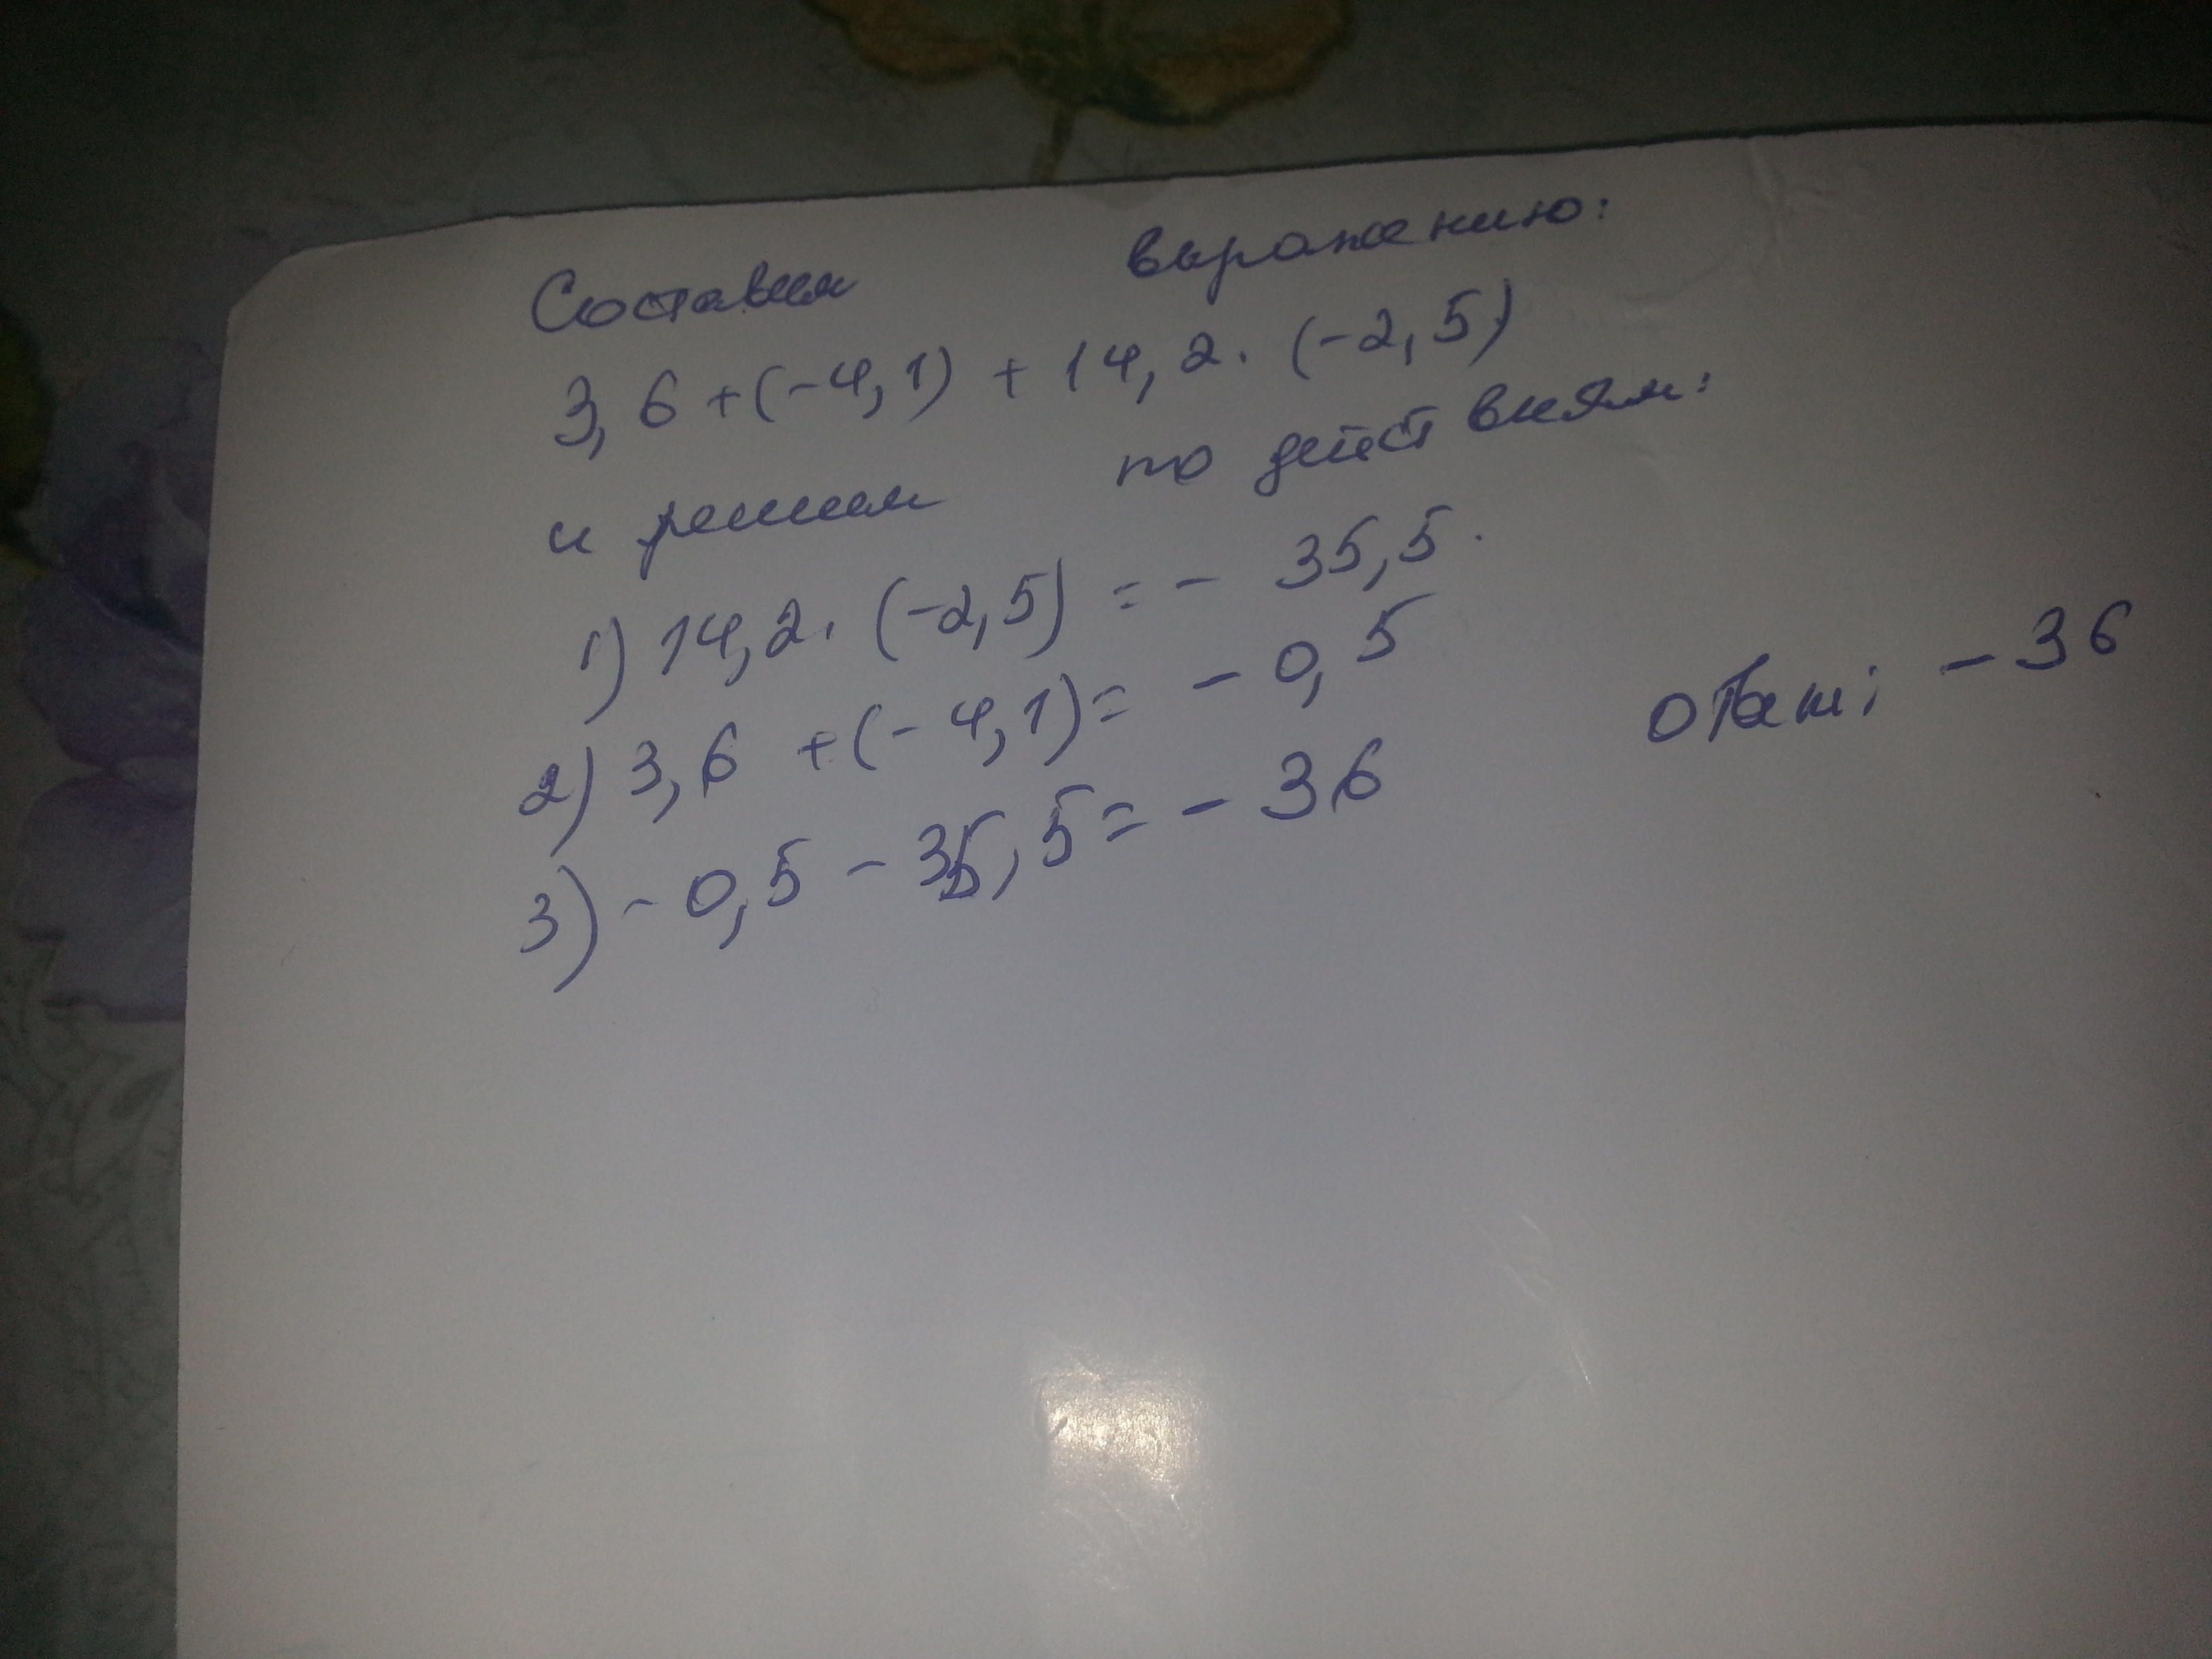 Составим выражению:
3,6 + (-4,1) + 14,2 · (-2,5)
и решим по действиям:
1) 14,2 · (-2,5) = - 35,5.
2) 3,6 + (-4,1) = - 0,5
3) - 0,5 - 35,5 = - 36
: - 36